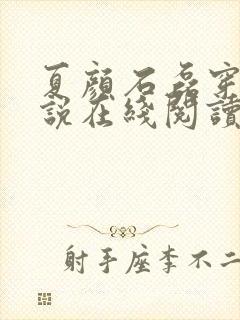 夏颜石磊穿
說在綫閱讀
射手座李不二